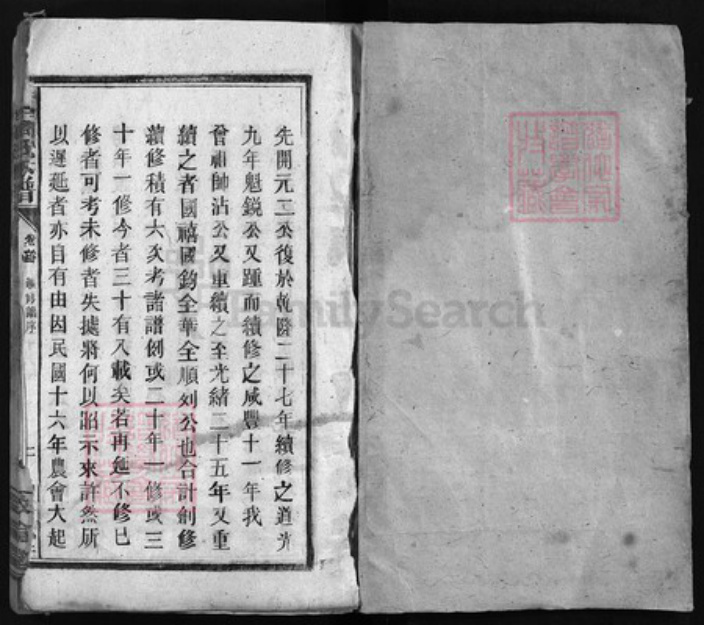 先開元二公復於乾隆二十七年續修之道光
九年魁鋭公又踵而續修之咸豐十一年我
曾祖帥沾公又重續之至光緒二十五年又重
續之者國禧國鈞全華全順列公也合計創修
續修積有六次考諸譜例或二十年一修或三
十年一修今者三十有八載矣若再延不修已
修者可考未修者失據將何以詔示來許然所
以遲延者亦自有由因民國十六年農會大起
卷首
FamilySearch